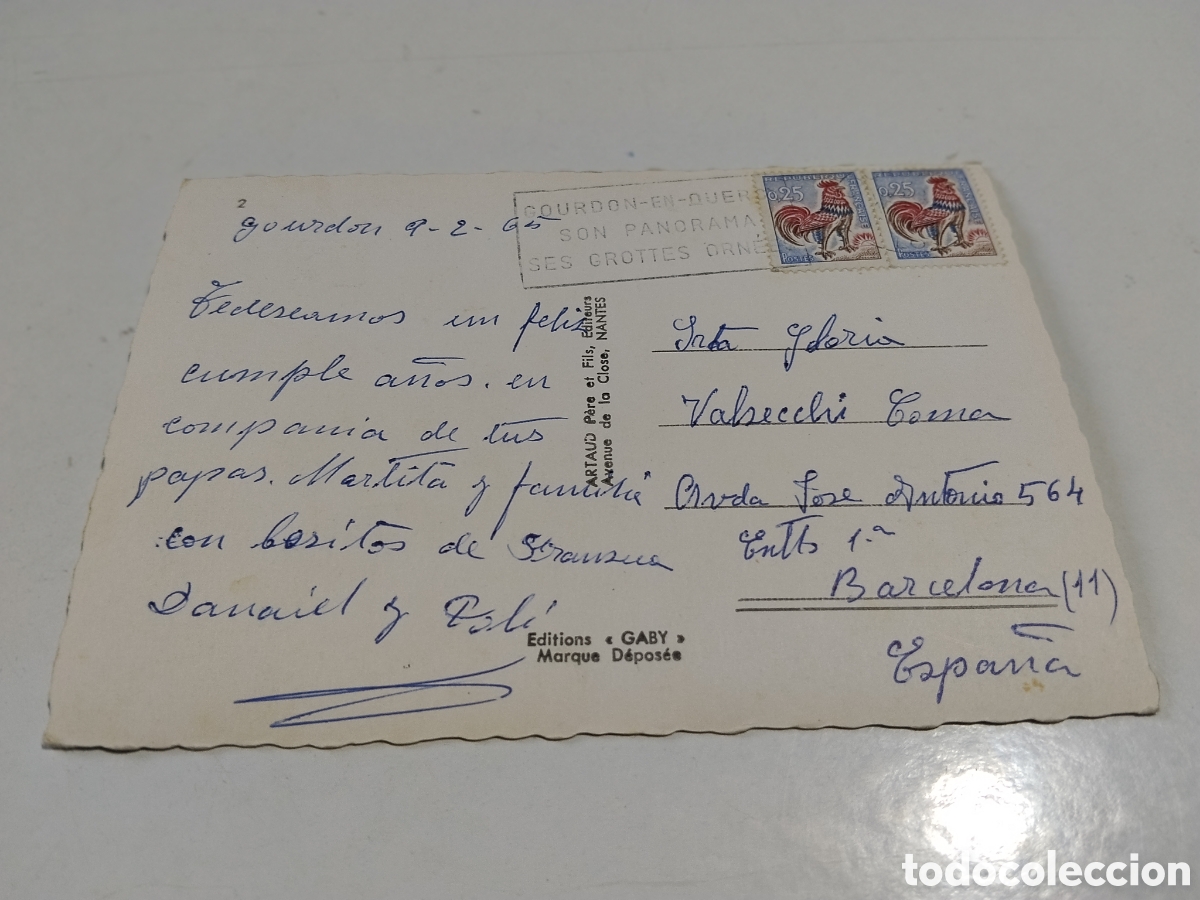 2
gourdon 9-2-65
GOURDON-EN-QUER
SON PANORAMA
SES GROTTES ORNÉ
0,25
POSTES
0,25
POSTES
Te deseamos un feliz
cumple años. en
compania de tus
papas. Martita y familia
con besitos de
y
ARTAUD Père et Fils, Editeurs
Avenue de la Close, NANTES
Editions « GABY »
Marque Déposée
Srta Gloria
Valsecchi Coma
Avda Jose Antonio 564
Entlo 1.ª
Barcelona (11)
España
todocoleccion